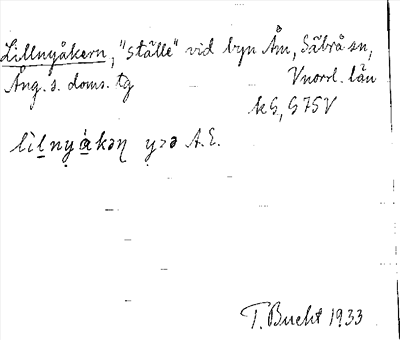 Lillnyåkern, "ställe" vid byn Åm, Säbrå sn,
Ång. s. doms. tg Vnorrl. län
kG, G75V
A.E.
T. Bucht 1933